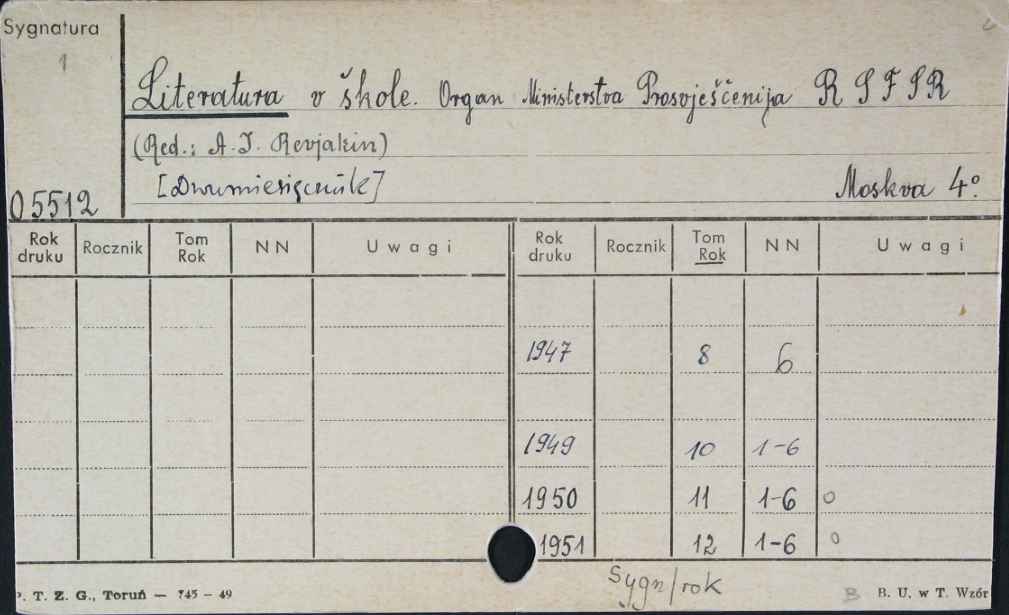 Sygnatura
1
Literatura v škole. Organ Ministerstva Prosvješčenija R S F S R
(Red.: A. I. Revjakin)
[Dwumiesięcznik]
Moskva 4º.
05512
Rok druku Rocznik Tom Rok N N Uwagi Rok druku Rocznik Tom Rok N N Uwagi
1947 8 6
1949 10 1-6
1950 11 1-6 o
1951 12 1-6 o
Sygn/rok
P. T. Z. G., Toruń — 745 — 49
B B. U. w T. Wzór